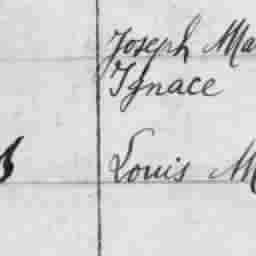 Joseph Ma
Ignace
Louis M